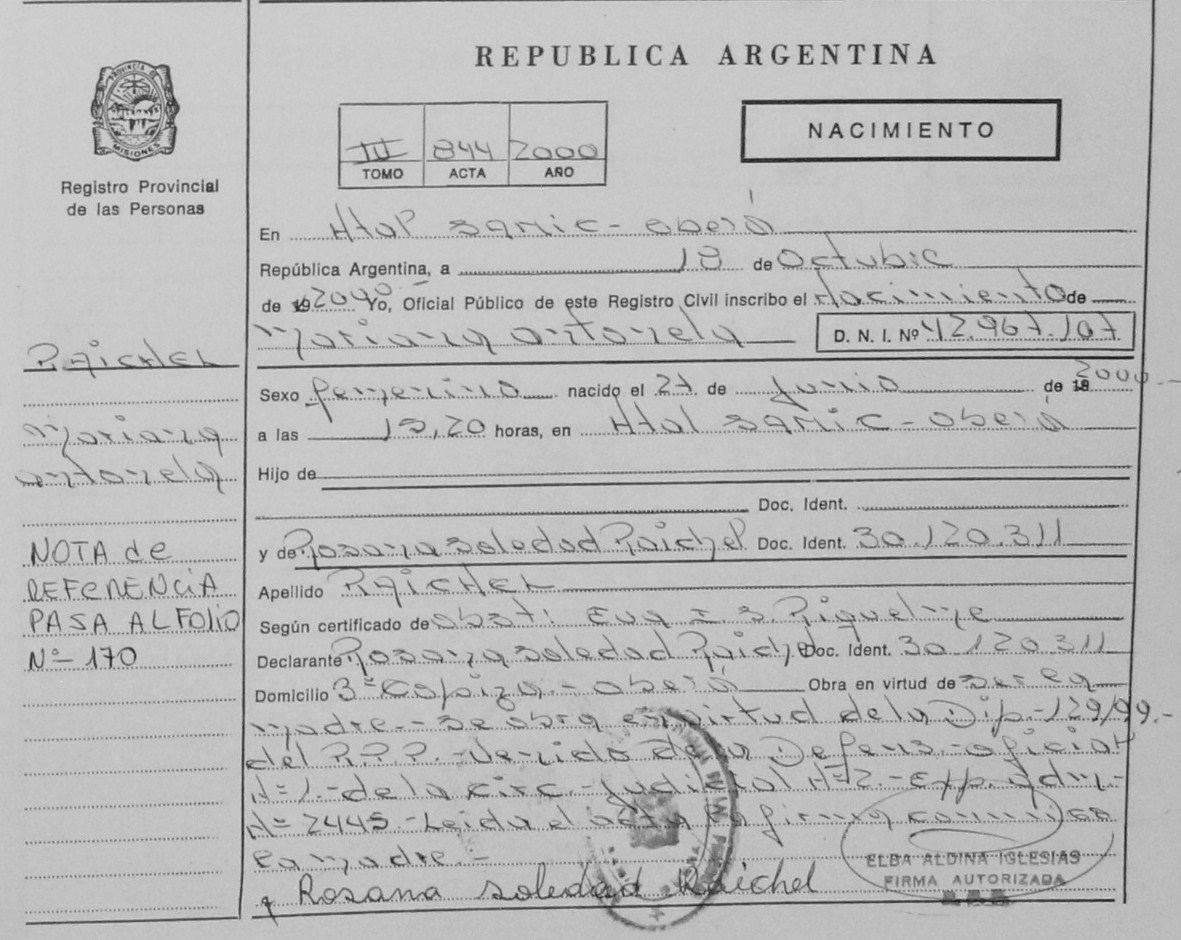 REPUBLICA ARGENTINA
PROVINCIA DE
MISIONES
Registro Provincial
de las Personas
III 844 2000
TOMO ACTA AÑO
NACIMIENTO
En Htal samic - oberá
República Argentina, a 18 de Octubre
de 19 2000 Yo, Oficial Público de este Registro Civil inscribo el Nacimiento de
Mariana antonela D. N. I. Nº 42.967.107
Raichel
Mariana
antonela
NOTA de
REFERENCIA
PASA AL FOLIO
Nº 170
Sexo femenino nacido el 27 de Junio de 19 2000.-
a las 15,20 horas, en Htal samic - oberá
Hijo de
Doc. Ident.
y de Rosana soledad Raichel Doc. Ident. 30.120.311
Apellido Raichel
Según certificado de obst: Eva I. S. Riquelme
Declarante Rosana soledad Raichel Doc. Ident. 30.120.311
Domicilio 3º - oberá Obra en virtud de ser la
madre.- se obra en virtud de la Dip.-129/99.-
del R.P.P.- Venido de la Defens.-oficial
Nº1.-de la circ.-Judicial Nº2.-Exp.Adm.-
Nº 2445.-Leida el acta la firma conmigo
la madre.-
Rosana soledad Raichel
ELBA ALDINA IGLESIAS
FIRMA AUTORIZADA